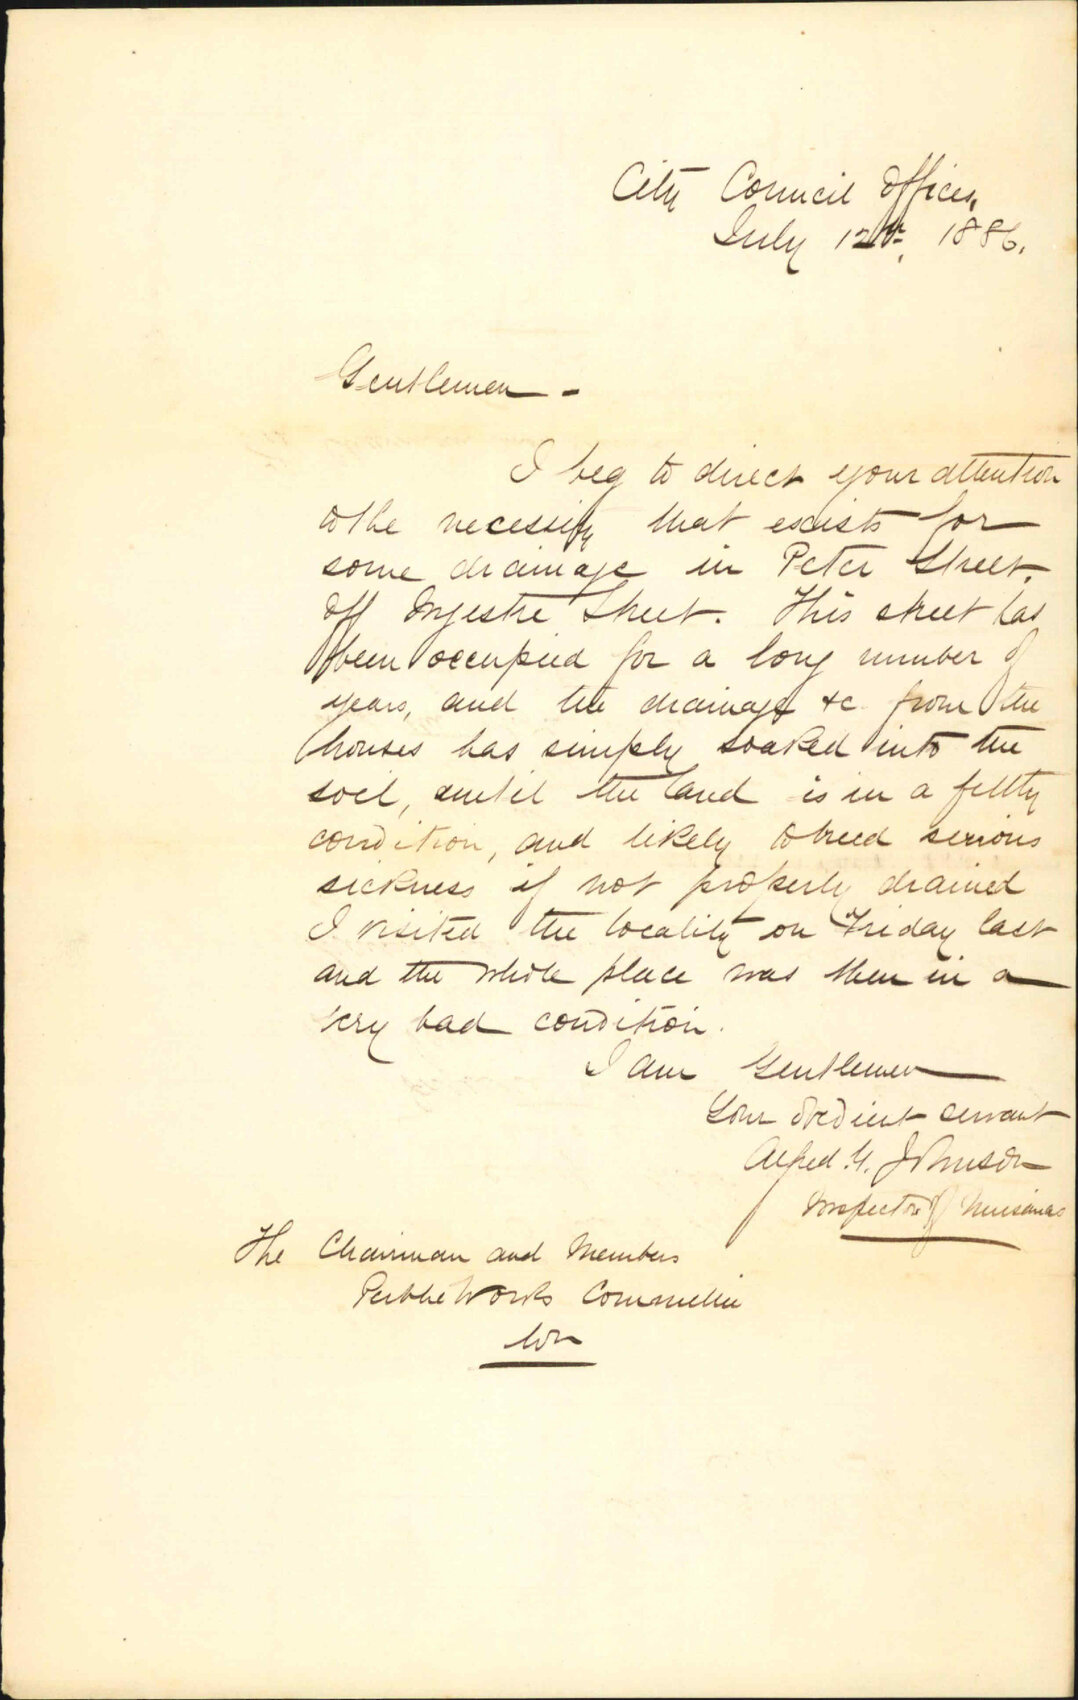 City Council Offices,
July 12th, 1886.
Gentlemen -
I beg to direct your attention
to the necessity that exists for
some drainage in Peter Street,
off Ingestre Street. This street has
been occupied for a long number of
years, and the drainage &c from the
houses has simply soaked into the
soil, until the land is in a filthy
condition, and likely to breed serious
sickness if not properly drained
I visited the locality on Friday last
and the whole place was then in a
very bad condition.
I am Gentlemen
Your obedient servant
Alfred G. Johnson
Inspector of Nuisances
The Chairman and Members
Public Works Committee